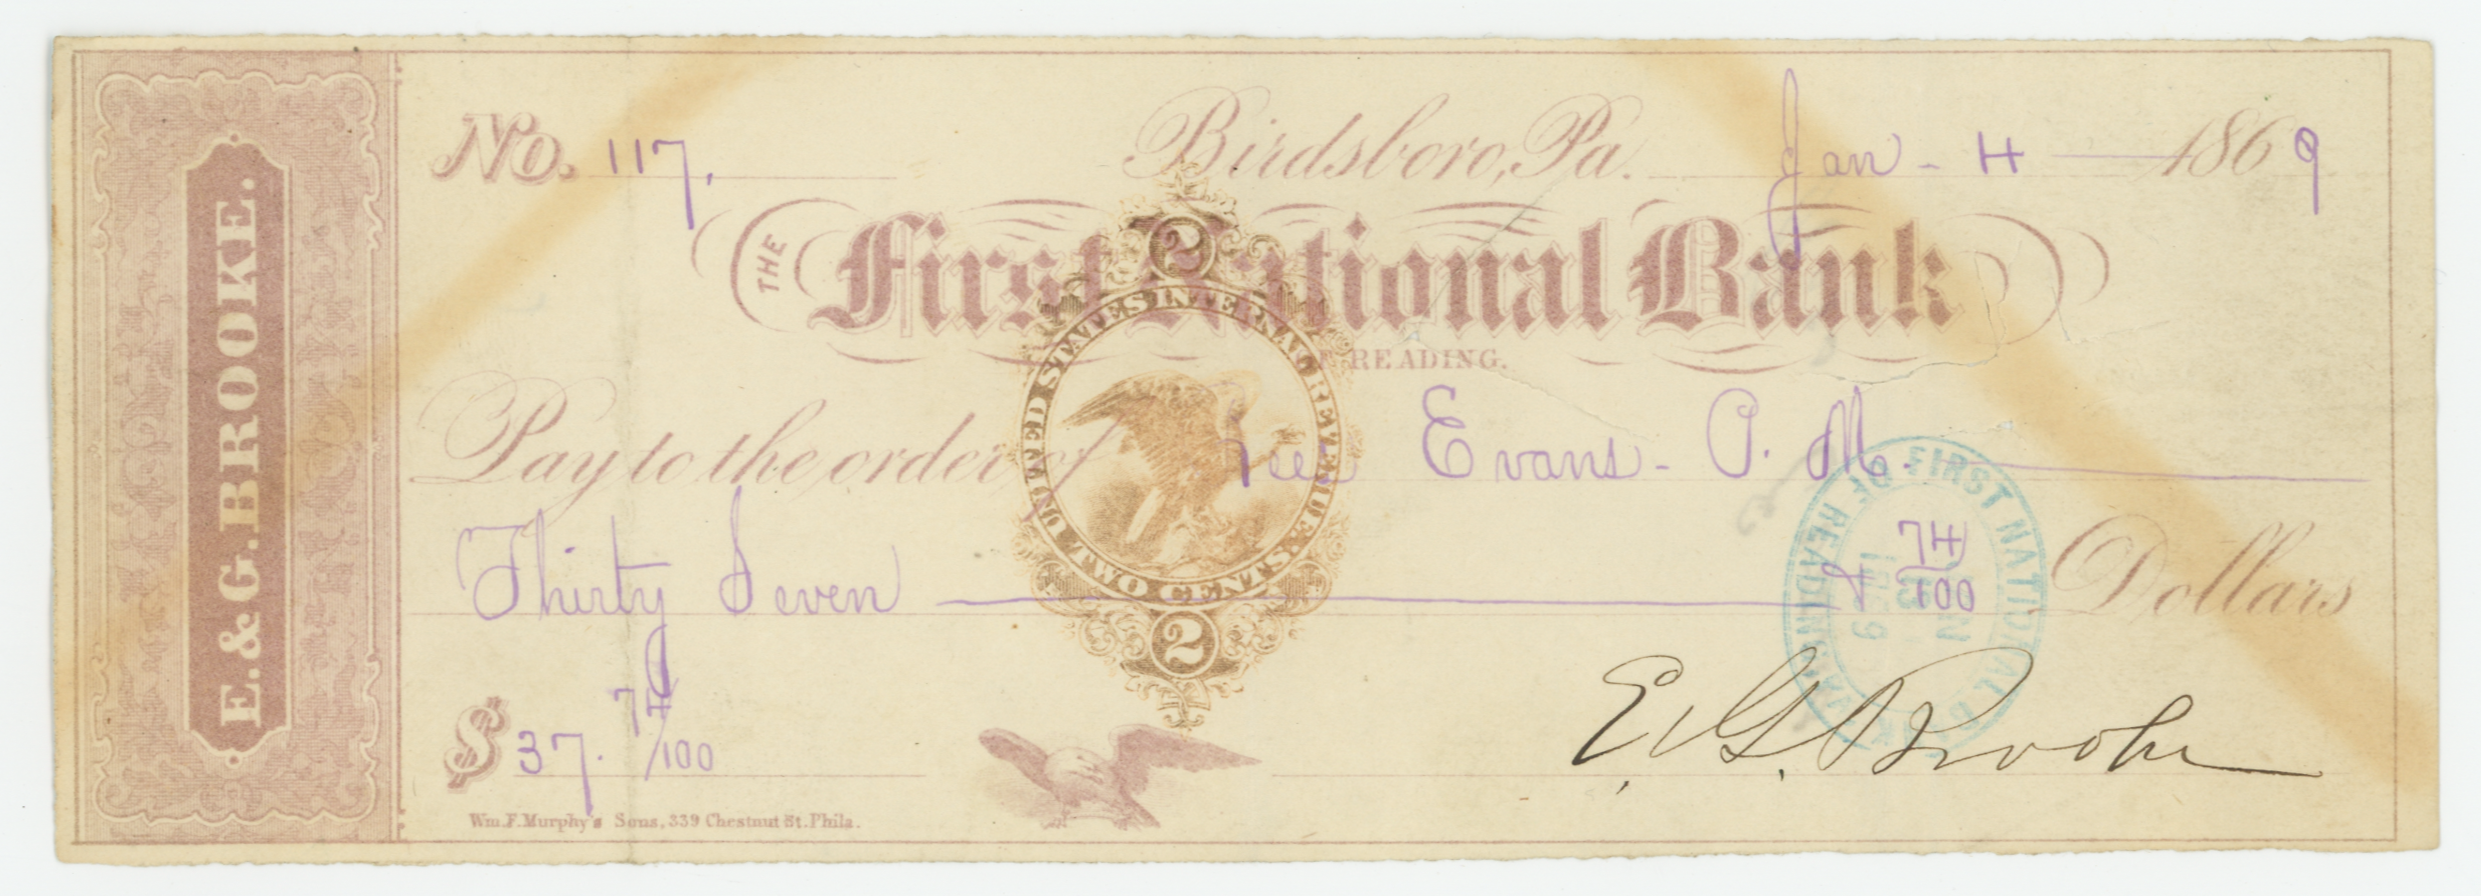 E. & G. BROOKE.
No. 117. Birdsboro, Pa. Jan - 4 1869
THE First National Bank
OF READING.
Pay to the order of Evans - P. M.
Thirty Seven & 74/100 Dollars
$ 37. 74/100
E. & G. Brooke
Wm. F. Murphy's Sons, 339 Chestnut St. Phila.
2
UNITED STATES INTERNAL REVENUE.
TWO CENTS.
2
FIRST NATIONAL BANK
OF READING, PA.
JAN
1869